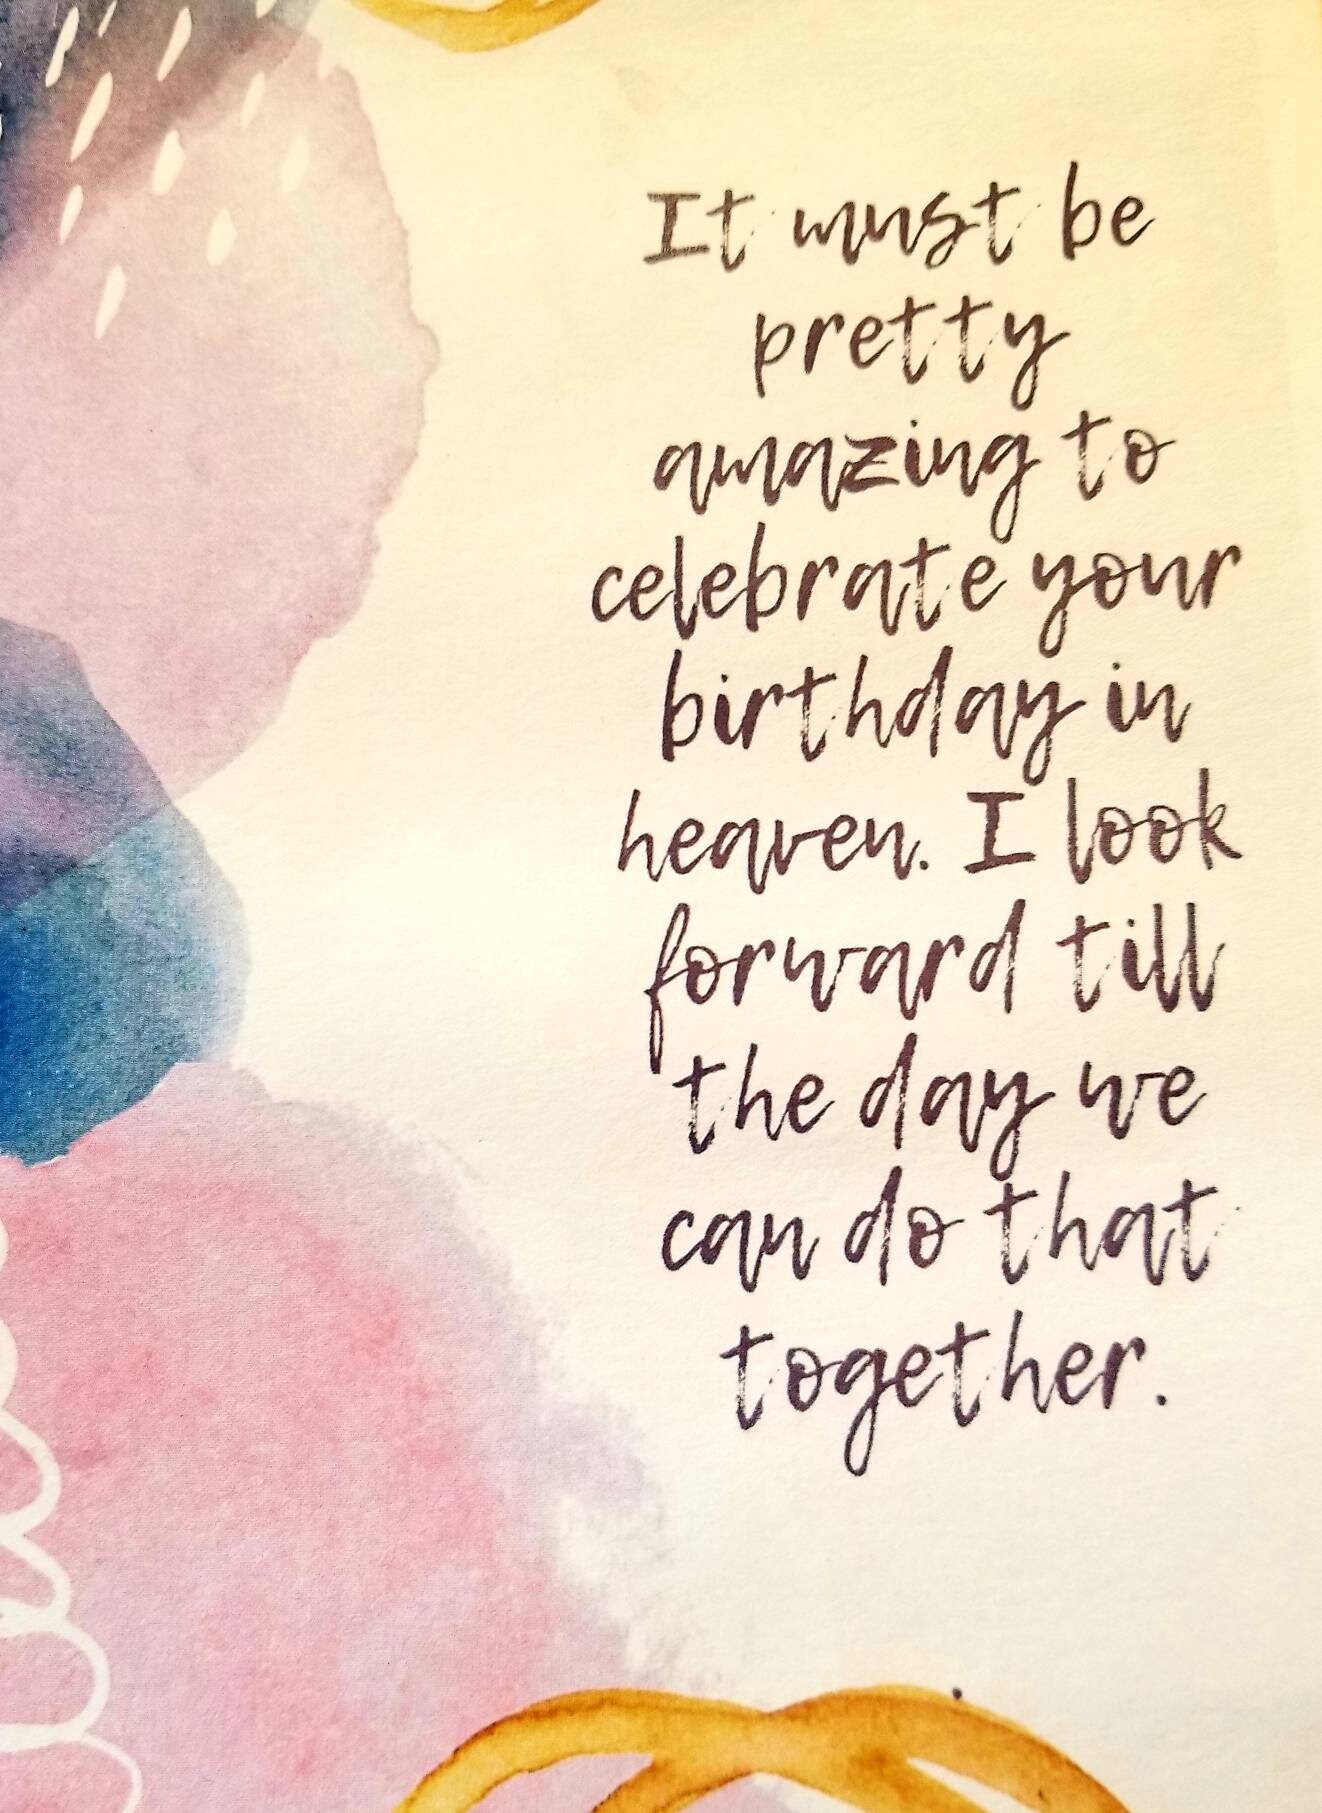 It must be
pretty
amazing to
celebrate your
birthday in
heaven. I look
forward till
the day we
can do that
together.